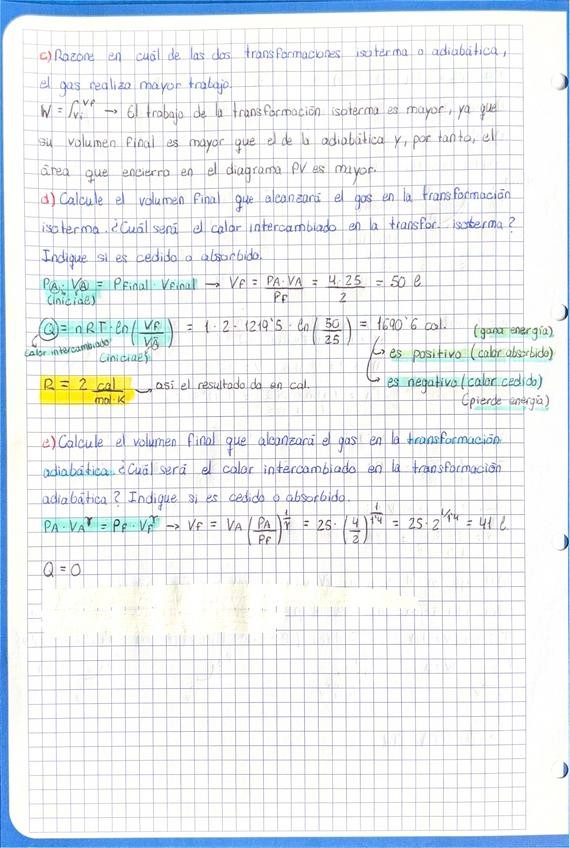 c) Razone en cuál de las dos transformaciones isoterma o adiabática,
el gas realiza mayor trabajo.
W = ∫Vi^Vf → El trabajo de la transformación isoterma es mayor, ya que
su volumen final es mayor que el de la adiabática y, por tanto, el
área que encierra en el diagrama PV es mayor.
d) Calcule el volumen final que alcanzará el gas en la transformación
isoterma. ¿Cuál será el calor intercambiado en la transfor. isoterma?
Indique si es cedido o absorbido.
PA · VA = Pfinal · Vfinal → Vf = PA·VA / Pf = 4·25 / 2 = 50 l
(iniciales)
Q = nRT · ln(Vf/VA) = 1 · 2 · 1219'5 · ln(50/25) = 1690'6 cal. (gana energía)
calor intercambiado (iniciales) → es positivo (calor absorbido)
R = 2 cal/mol·K → así el resultado da en cal. → es negativo (calor cedido)
(pierde energía)
e) Calcule el volumen final que alcanzará el gas en la transformación
adiabática. ¿Cuál será el calor intercambiado en la transformación
adiabática? Indique si es cedido o absorbido.
PA · VA^γ = Pf · Vf^γ → Vf = VA (PA/Pf)^(1/γ) = 25 · (4/2)^(1/1'4) = 25 · 2^(1/1'4) = 41 l
Q = 0